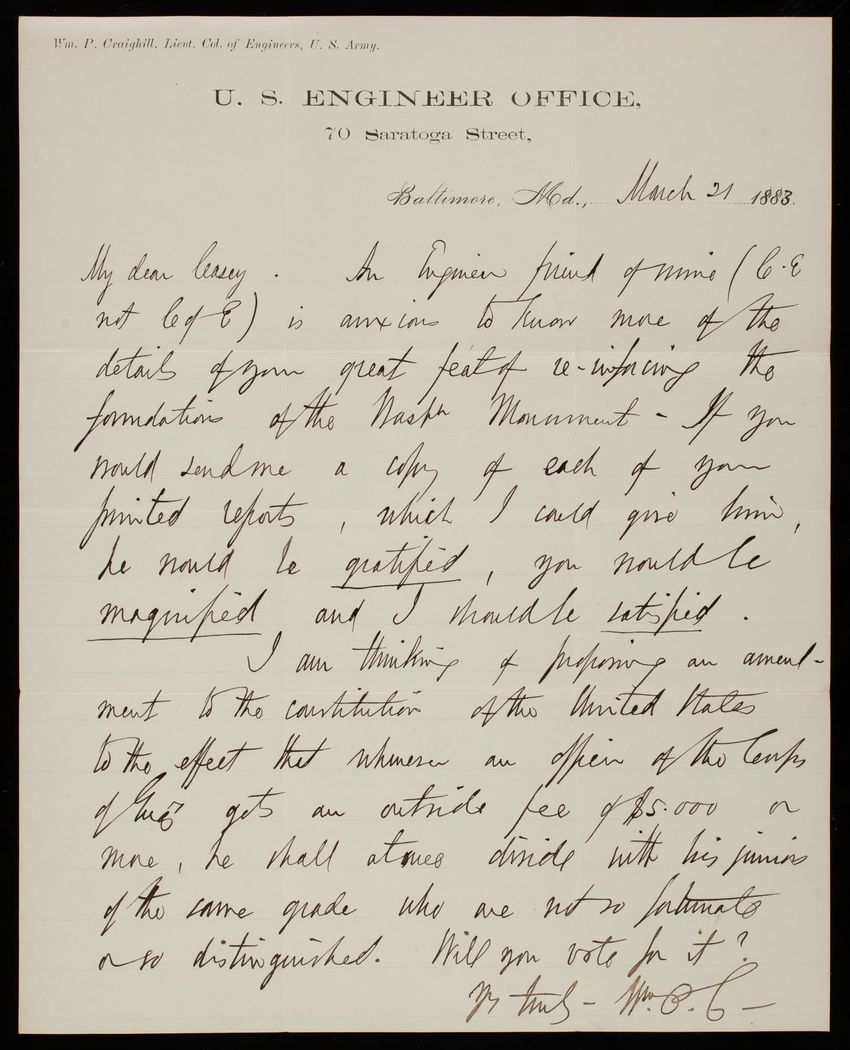 Wm. P. Craighill, Lieut. Col. of Engineers, U. S. Army.
U. S. ENGINEER OFFICE,
70 Saratoga Street,
Baltimore, Md., March 21 1883.
My dear Casey. An Engineer friend of mine (C-E
not C of E) is anxious to know more of the
details of your great feat of re-inforcing the
foundations of the Washn Monument - If you
would send me a copy of each of your
printed reports, which I could give him,
he would be gratified, you would be
magnified and I should be satisfied.
I am thinking of proposing an amend-
ment to the constitution of the United States
to the effect that whenever an officer of the Corps
of Engrs gets an outside fee of $5.000 or
more, he shall at once divide with his juniors
of the same grade who are not so fortunate
or so distinguished. Will you vote for it?
Yrs truly - Wm. P. C -